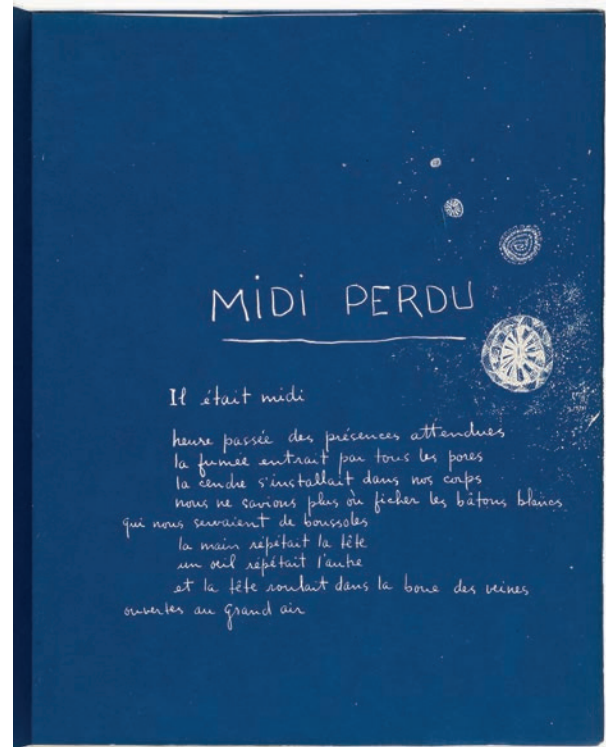 MiDi PERDU
Il était midi
heure passée des présences attendues
la fumée entrait par tous les pores
la cendre s'installait dans nos corps
nous ne savions plus où ficher les bâtons blancs
qui nous servaient de boussoles
la main répétait la tête
un œil répétait l'autre
et la tête roulait dans la boue des veines
ouvertes au grand air